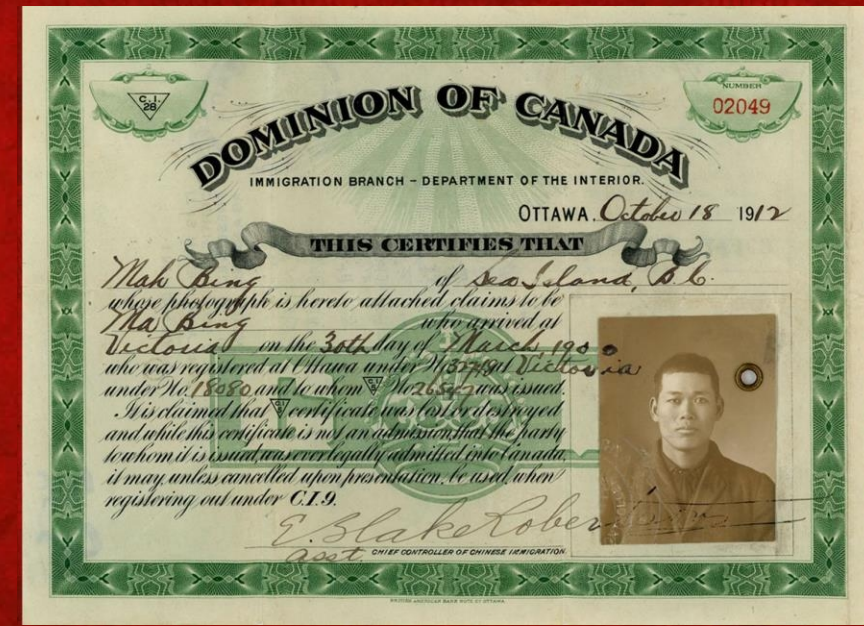 C.I.
28
NUMBER
02049
DOMINION OF CANADA
IMMIGRATION BRANCH - DEPARTMENT OF THE INTERIOR.
OTTAWA. October 18 1912
THIS CERTIFIES THAT
Mah Bing of Sea Island, B.C.
whose photograph is hereto attached claims to be
Ma Bing who arrived at
Victoria on the 30th day of March 1900
who was registered at Ottawa under No. at Victoria
under No. 18080 and to whom C.I. No. was issued.
It is claimed that C.I. certificate was lost or destroyed
and while this certificate is not an admission that the party
to whom it is issued, was ever legally admitted into Canada,
it may, unless cancelled upon presentation, be used, when
registering out under C.I.9.
E. Blake Robertson
asst. CHIEF CONTROLLER OF CHINESE IMMIGRATION.
BRITISH AMERICAN BANK NOTE CO. OTTAWA.